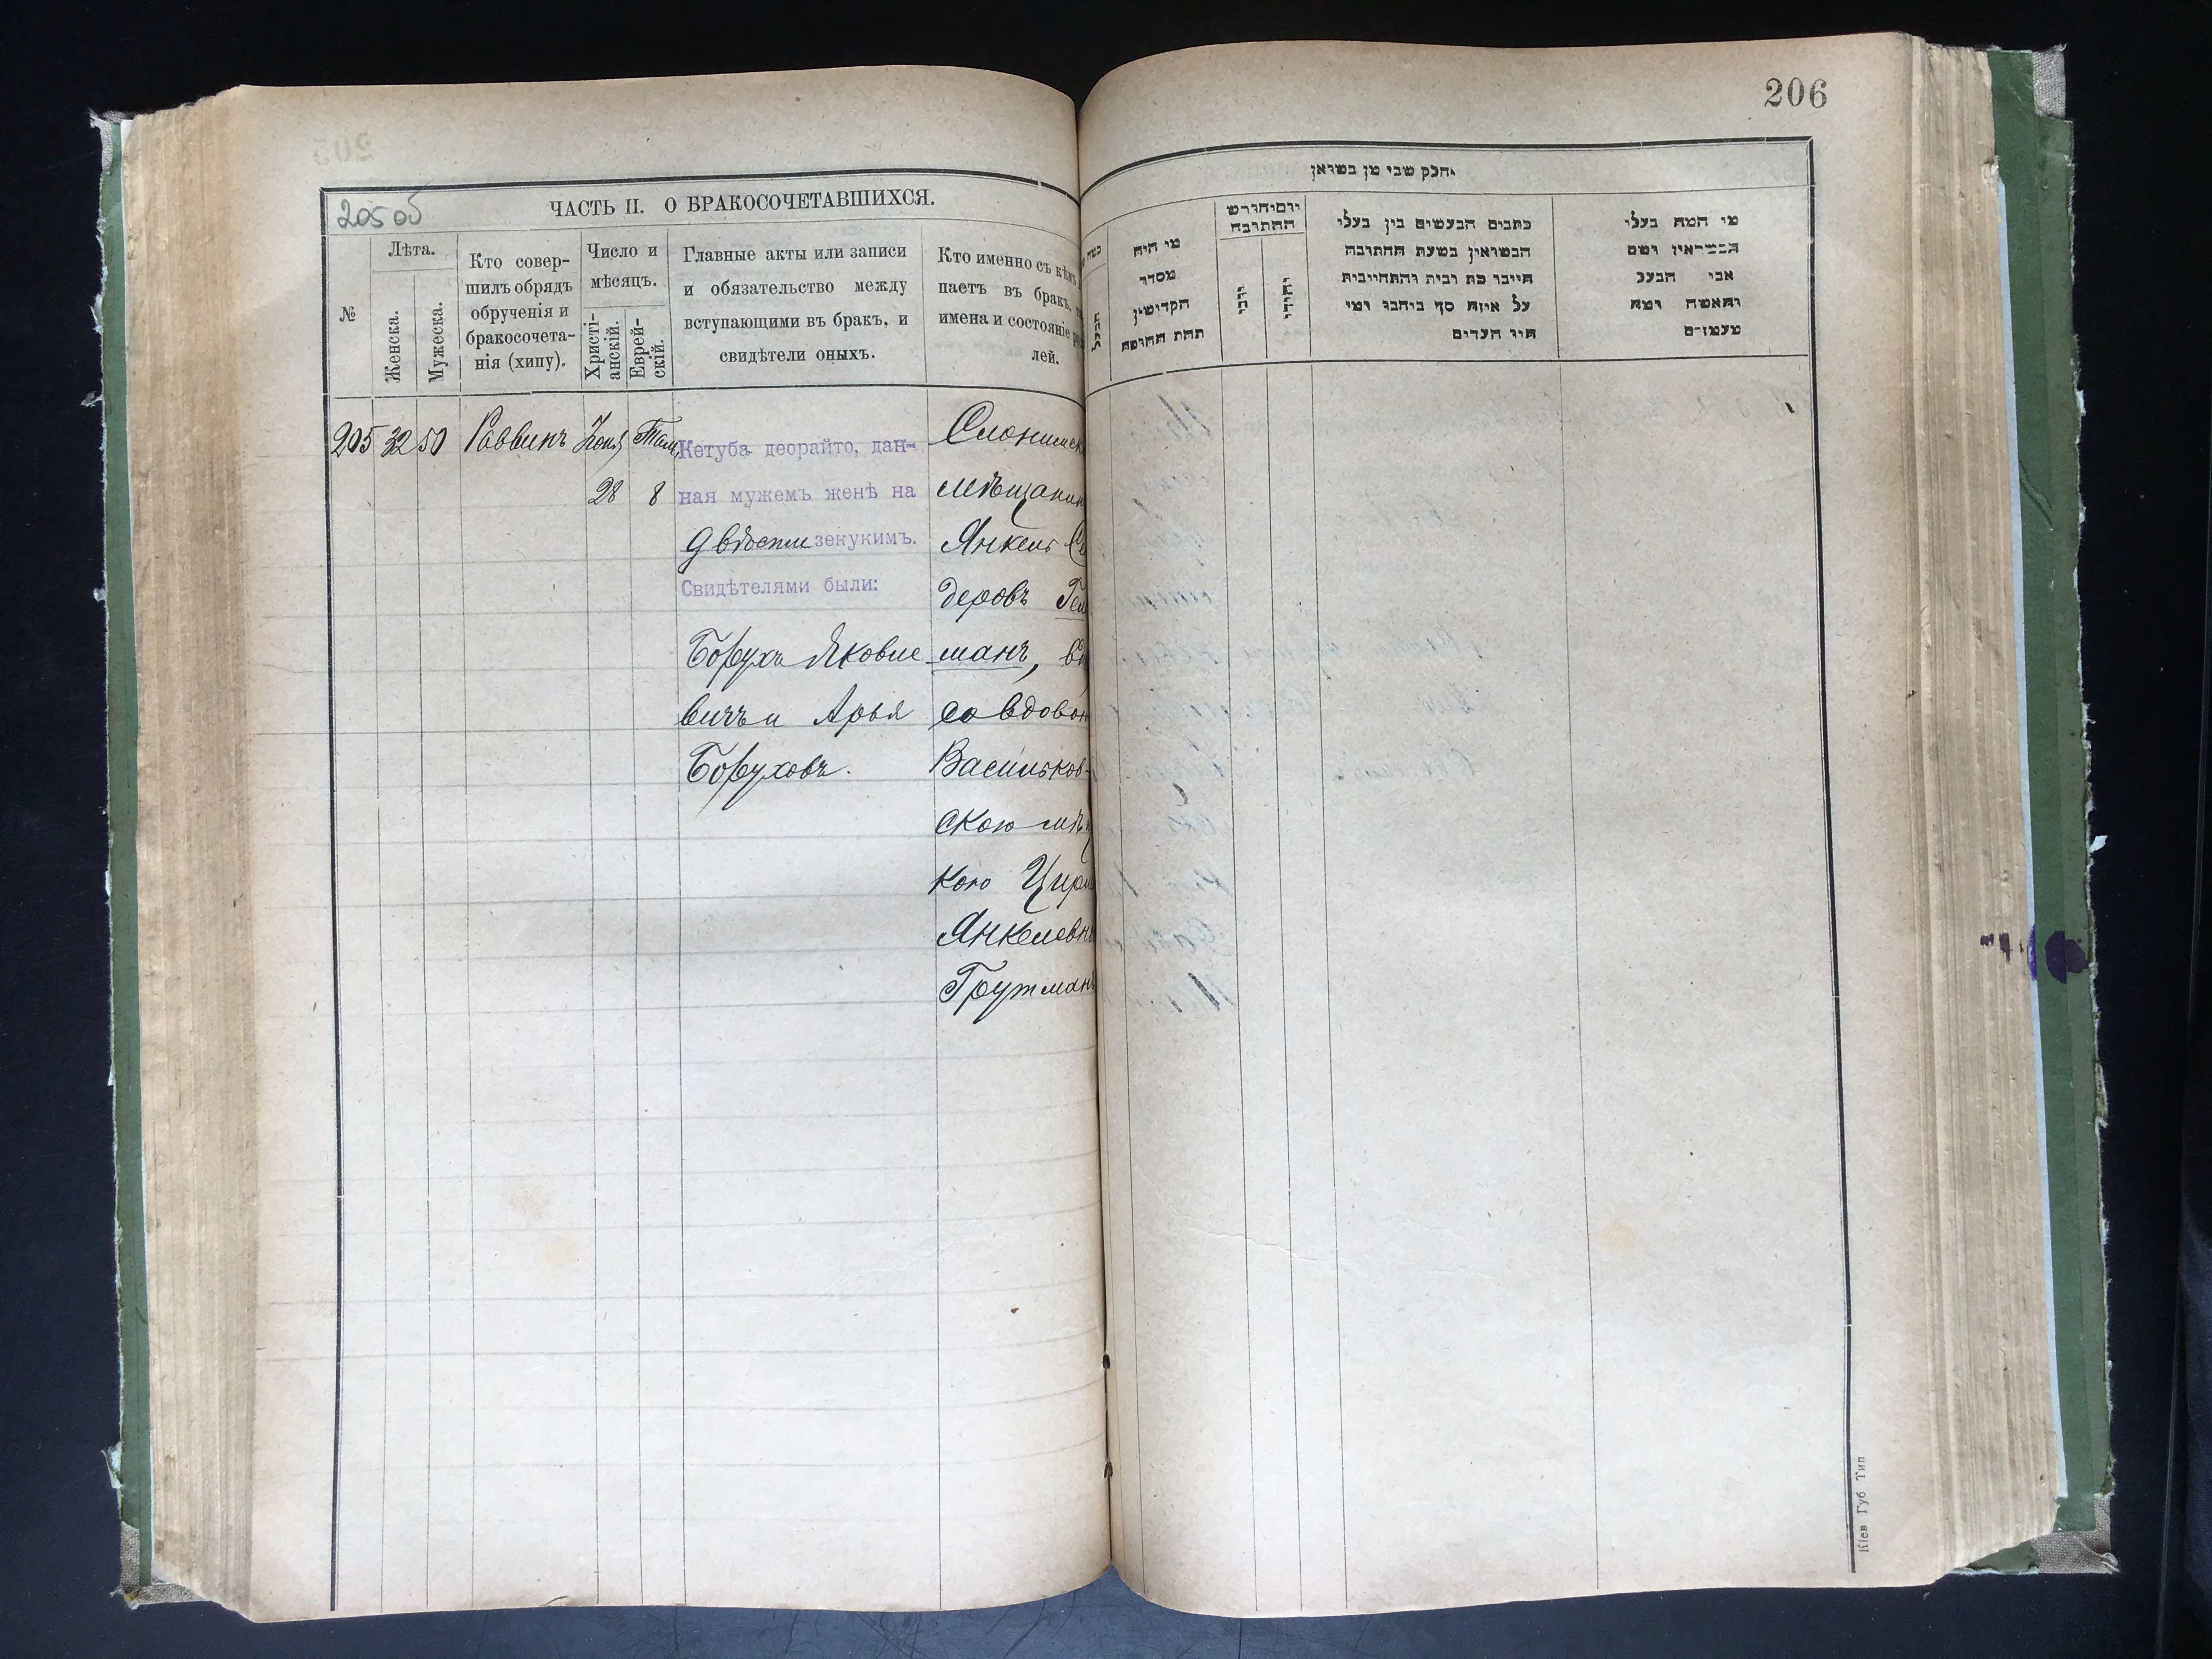 206
205 об
ЧАСТЬ II. О БРАКОСОЧЕТАВШИХСЯ.
№
Лѣта.
Женска.
Мужеска.
Кто совер-
шилъ обрядъ
обрученія и
бракосочета-
нія (хипу).
Число и
мѣсяцъ.
Христі-
анскій.
Еврей-
скій.
Главные акты или записи
и обязательство между
вступающими въ бракъ, и
свидѣтели оныхъ.
Кто именно съ кѣмъ
паетъ въ бракъ,
имена и состояніе
лей.
205 32 50 Раввинъ Іюня Там.
28 8
Кетуба деорайто, дан-
ная мужемъ женѣ на
двѣсти зекукимъ.
Свидѣтелями были:
Борухъ Яковле
вичъ и Арья
Боруховъ.
Слонимск
мѣщанин
Янкель
деровъ Гел
манъ,
со вдовою
Васильков-
скою мѣщ
кою
Янкелевн
Грутман
חלק שני מן נשואין
מי היה
מסדר
הקדושין
תחת החופה
הבעל
יום וחודש
החתונה
כתבים הנעשים בין בעלי
הנשואין בשעת החתונה
חיובי כת ובית והתחייבות
על איזה סך ביניהם ומי
היו העדים
מי המה בעלי
הנשואין ושם
אבי הבעל
והאשה ומה
מעמדם
Кіев Губ Тип